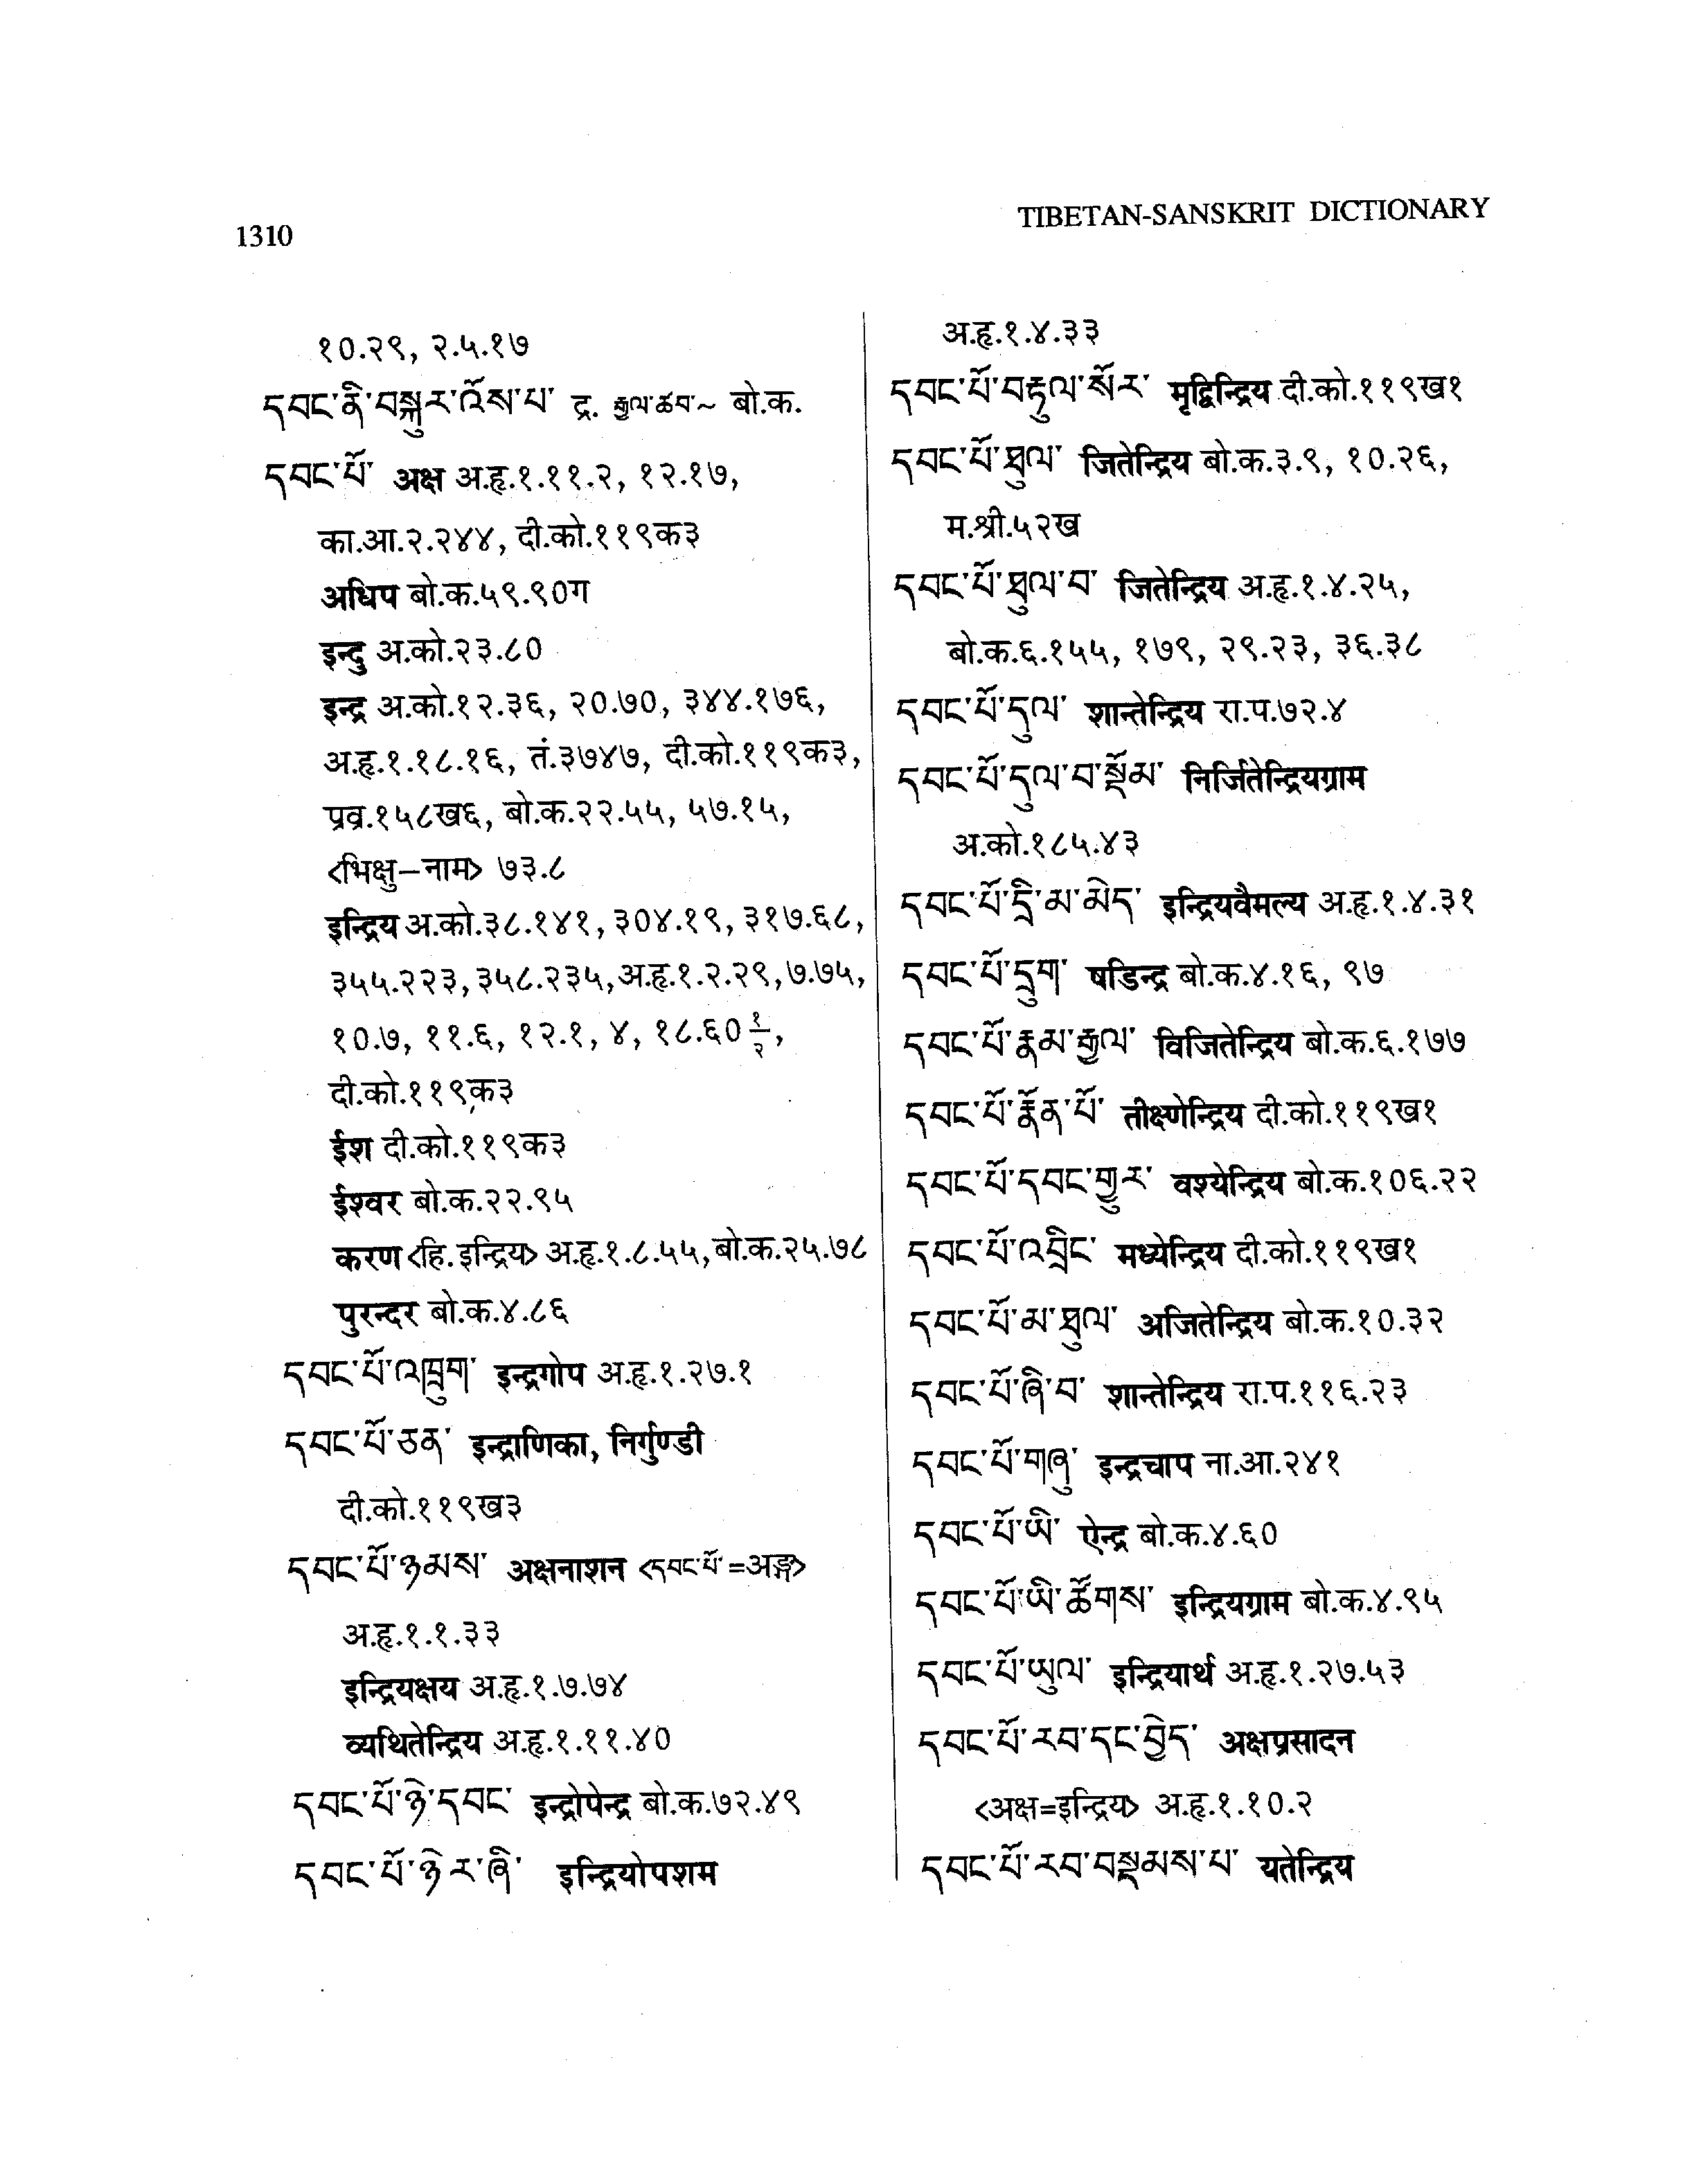 1310
TIBETAN-SANSKRIT DICTIONARY
१०.२९, २.५.१७
དབང་ནི་བསྐུར་འོས་པ་ द्र. རྒྱལ་ཚབ་~ बो.क.
དབང་པོ་ अक्ष अ.हृ.१.११.२, १२.१७,
का.आ.२.२४४, दी.को.११९क३
अधिप बो.क.५९.९०ग
इन्दु अ.को.२३.८०
इन्द्र अ.को.१२.३६, २०.७०, ३४४.१७६,
अ.हृ.१.१८.१६, तं.३७४७, दी.को.११९क३,
प्रव्र.१५८ख६, बो.क.२२.५५, ५७.१५,
<भिक्षु–नाम> ७३.८
इन्द्रिय अ.को.३८.१४१, ३०४.१९, ३१७.६८,
३५५.२२३, ३५८.२३५, अ.हृ.१.२.२९, ७.७५,
१०.७, ११.६, १२.१, ४, १८.६० १/२,
दी.को.११९क३
ईश दी.को.११९क३
ईश्वर बो.क.२२.९५
करण <हि.इन्द्रिय> अ.हृ.१.८.५५, बो.क.२५.७८
पुरन्दर बो.क.४.८६
དབང་པོ་འཁྲུག་ इन्द्रगोप अ.हृ.१.२७.१
དབང་པོ་ཅན་ इन्द्राणिका, निर्गुण्डी
दी.को.११९ख३
དབང་པོ་ཉམས་ अक्षनाशन <དབང་པོ་=अङ्ग>
अ.हृ.१.१.३३
इन्द्रियक्षय अ.हृ.१.७.७४
व्यथितेन्द्रिय अ.हृ.१.११.४०
དབང་པོ་ཉེ་དབང་ इन्द्रोपेन्द्र बो.क.७२.४९
དབང་པོ་ཉེར་ཞི་ इन्द्रियोपशम
अ.हृ.१.४.३३
དབང་པོ་བརྟུལ་སོར་ मृद्विन्द्रिय दी.को.११९ख१
དབང་པོ་ཐུལ་ जितेन्द्रिय बो.क.३.९, १०.२६,
म.श्री.५२ख
དབང་པོ་ཐུལ་བ་ जितेन्द्रिय अ.हृ.१.४.२५,
बो.क.६.१५५, १७९, २९.२३, ३६.३८
དབང་པོ་དུལ་ शान्तेन्द्रिय रा.प.७२.४
དབང་པོ་དུལ་བ་སྡོམ་ निर्जितेन्द्रियग्राम
अ.को.१८५.४३
དབང་པོ་དྲི་མ་མེད་ इन्द्रियवैमल्य अ.हृ.१.४.३१
དབང་པོ་དྲུག་ षडिन्द्र बो.क.४.१६, ९७
དབང་པོ་རྣམ་རྒྱལ་ विजितेन्द्रिय बो.क.६.१७७
དབང་པོ་རྣོན་པོ་ तीक्ष्णेन्द्रिय दी.को.११९ख१
དབང་པོ་དབང་གྱུར་ वश्येन्द्रिय बो.क.१०६.२२
དབང་པོ་འབྲིང་ मध्येन्द्रिय दी.को.११९ख१
དབང་པོ་མ་ཐུལ་ अजितेन्द्रिय बो.क.१०.३२
དབང་པོ་ཞི་བ་ शान्तेन्द्रिय रा.प.११६.२३
དབང་པོ་གཞུ་ इन्द्रचाप ना.आ.२४१
དབང་པོ་ཡི་ ऐन्द्र बो.क.४.६०
དབང་པོ་ཡི་ཚོགས་ इन्द्रियग्राम बो.क.४.९५
དབང་པོ་ཡུལ་ इन्द्रियार्थ अ.हृ.१.२७.५३
དབང་པོ་རབ་དང་བྱེད་ अक्षप्रसादन
<अक्ष=इन्द्रिय> अ.हृ.१.१०.२
དབང་པོ་རབ་བསྡམས་པ་ यतेन्द्रिय